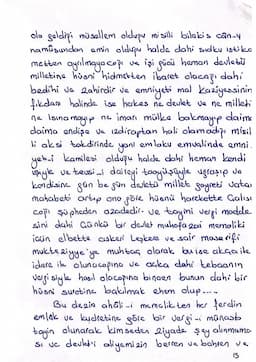 ola geldiği müsellem olduğu misilli bilakis can-ı
namûsundan emin olduğu halde dahi sıdku istika
metten ayrılmayacağı ve işi gücü heman devletü
milletine hüsni hidmetten ibaret olacağı dahi
bedihi ve zahirdir ve emniyeti mal kaziyyesinin
fıkdanı halinde ise herkes ne devlet ve ne milleti
ne ısınamayıp ne imarı mülke bakmayıp daima
endişe ve ızdıraptan hali olamadığı misil
li aksi takdirinde yani emlaku emvalinde emni
yet-i kamilesi olduğu halde dahi heman kendi
işiyle ve tevsi-i daireyi taayyüşüyle uğraşıp ve
kendisine gün be gün devletü millet gayreti vatan
mahabeti artıp ona göre hüsnü harekette çalışa
cağı şüpheden azadedir ve tayini vergi madde
sini dahi çünkü bir devlet muhafazai memaliki
için elbette askeri leşkere ve sair masarifi
muktaziyye'ye muhtaç olarak bu ise akçe ile
idare ile olunacağına ve akça dahi tebaanın
vergisiyle hasıl olacağına binaen bunun dahi bir
hüsni suretine bakılmak ehem olup....
ahâli-i memalikten her ferdin
emlak ve kudretine göre bir vergi-i münasib
tayin olunarak kimseden ziyade şey alınmama
sı ve devlet-i aliyemizin berren ve bahren ve
13